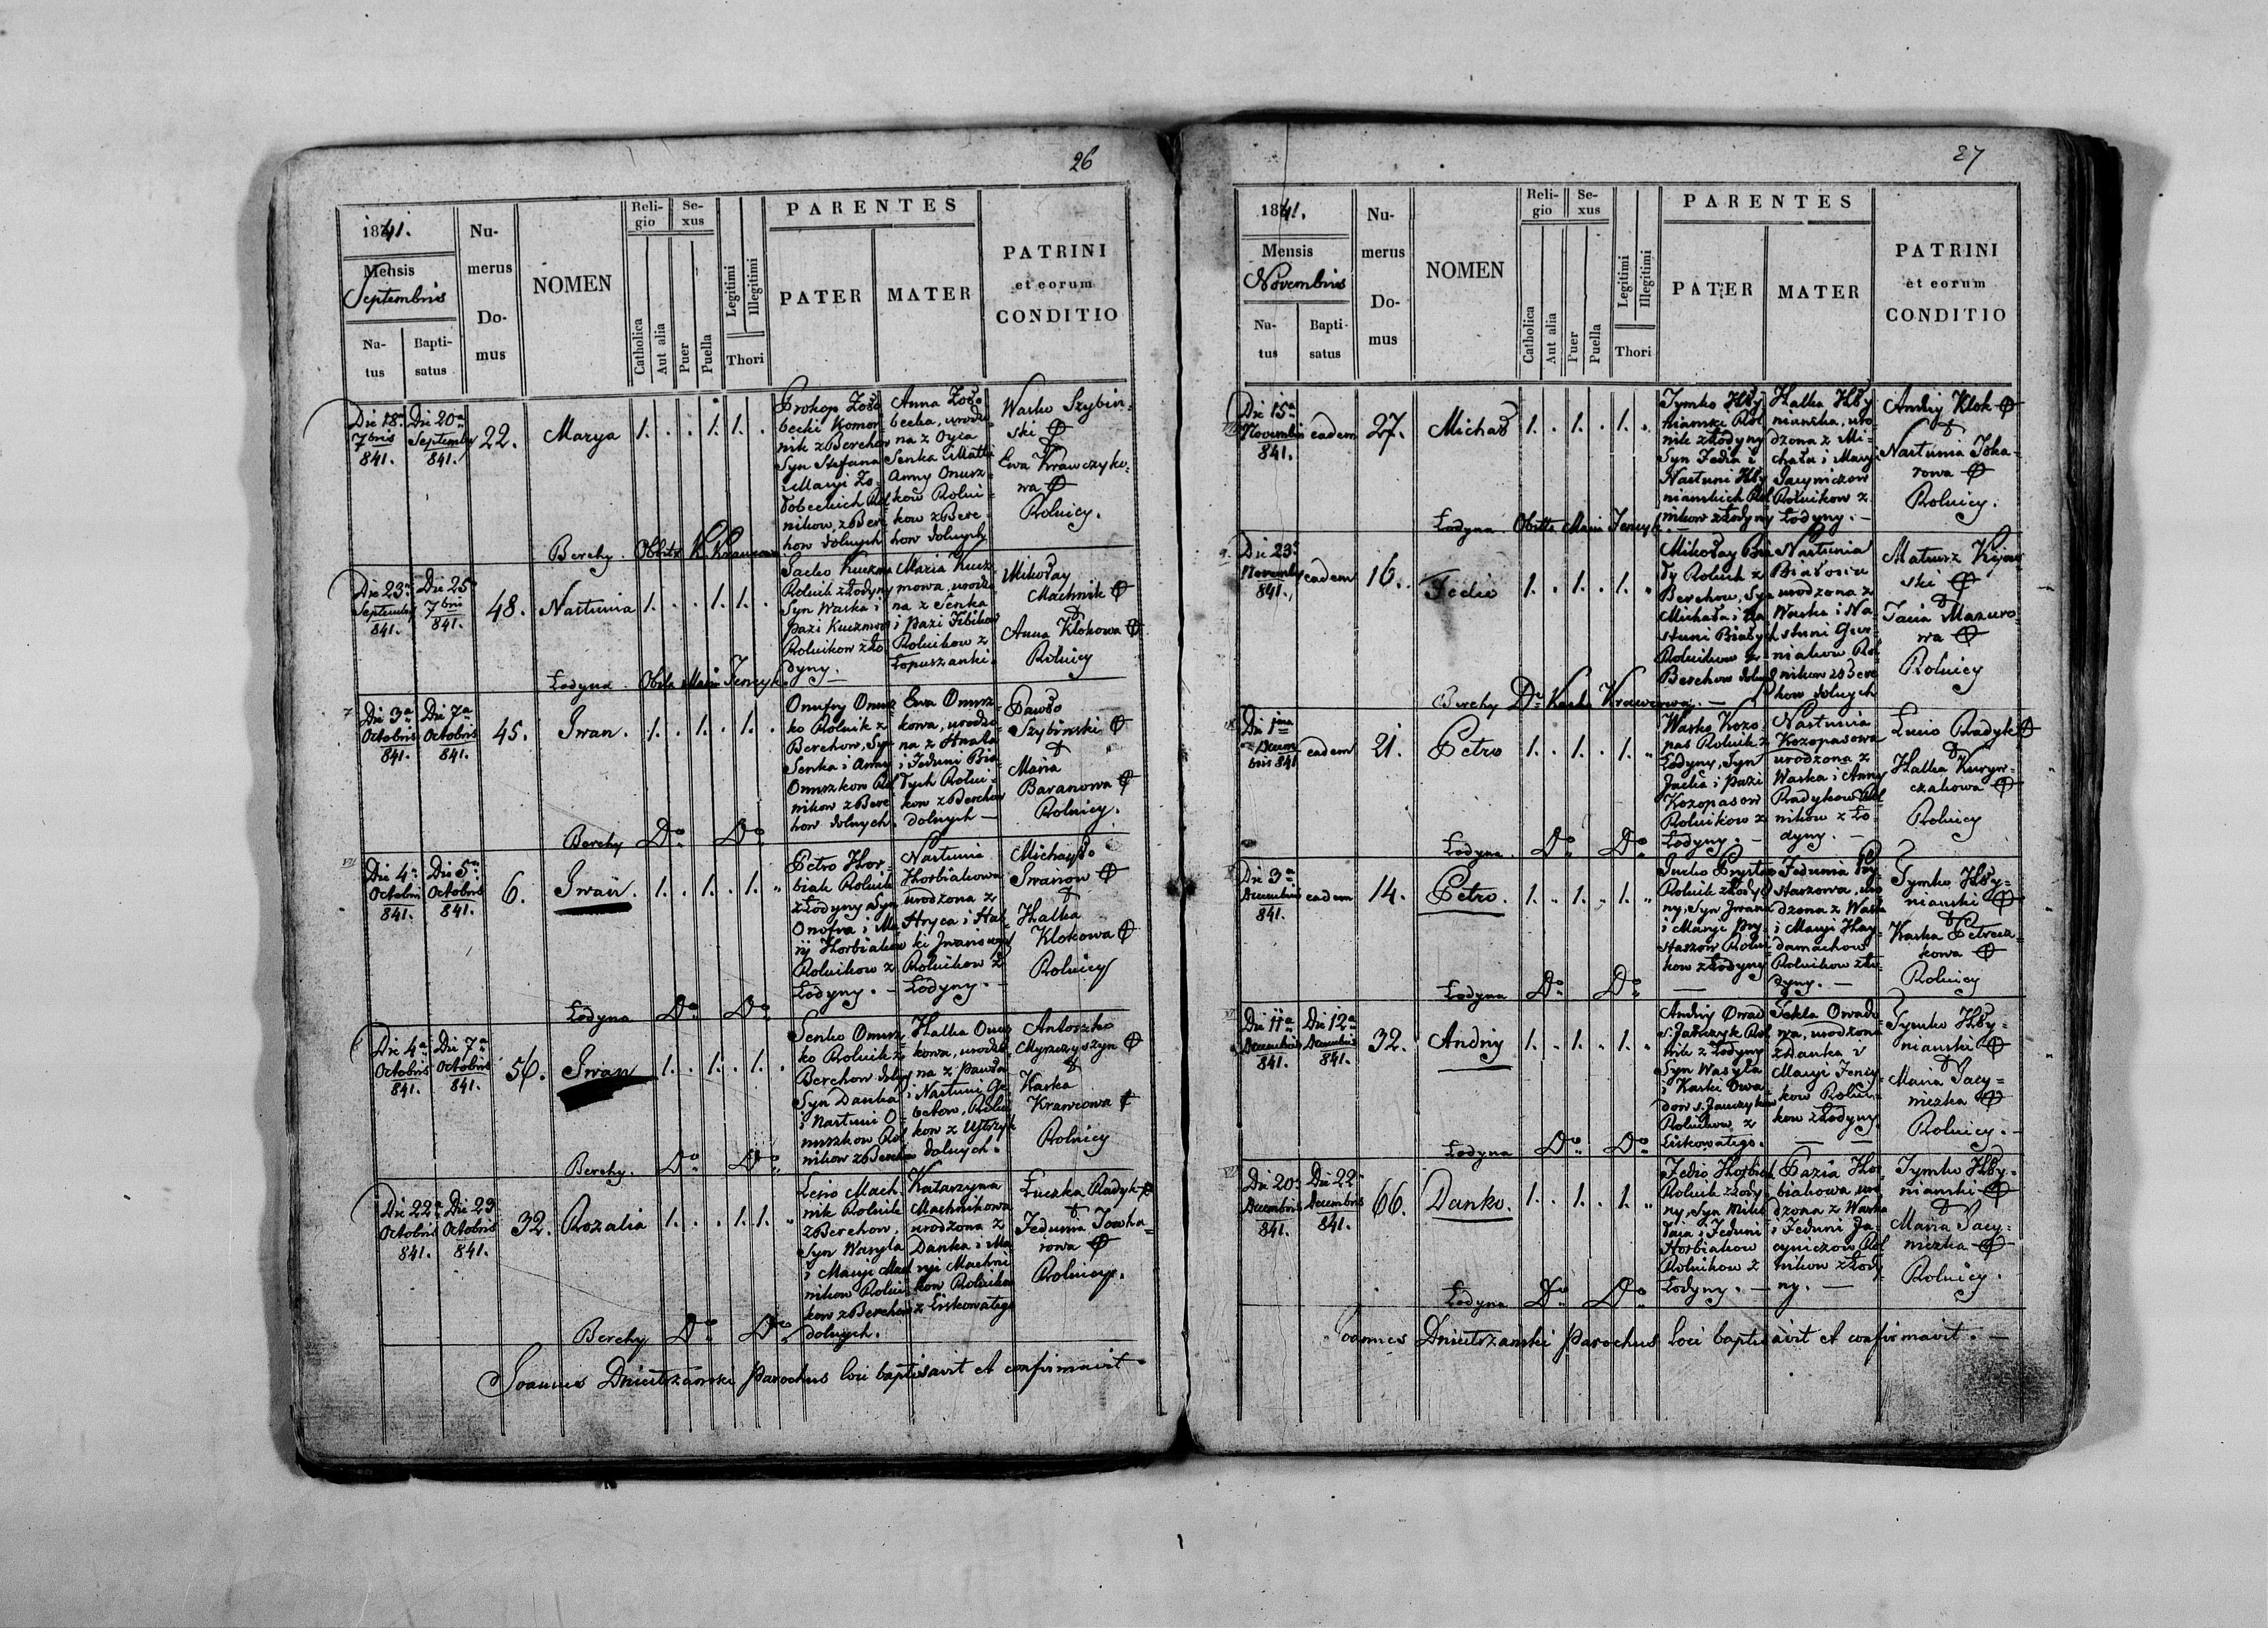 26
1841.
Mensis
Septembris
Na-
tus
Bapti-
satus
Nu-
merus
Do-
mus
NOMEN
Reli-
gio
Catholica
Aut alia
Se-
xus
Puer
Puella
Legitimi
Illegitimi
Thori
PARENTES
PATER
MATER
PATRINI
et eorum
CONDITIO
Die 18a
7bris
841.
Die 20a
Septembr
841.
22.
Marya
1. . . 1. 1. .
Prokop Zoło
becki Komor
nik z Berehow
Syn Stefana
i Maryi Zo-
łobeckich Rol
nikow z Bere
how dolnych
Anna Zoło
becka, urodzo
na z Oyca
Senka i Matki
Anny Onusz-
kow Rolni
kow z Bere
how dolnych
Wasko Szybin-
ski
Ewa Krawczyko-
wa
Rolnicy.
Berehy. Obstx K. Krawcowa
Die 23a
Septembr
841.
Die 25a
7bris
841.
48.
Nastunia
1. . . 1. 1. .
Jacko Kuzma
Rolnik z Łodyny
Syn Waska i
Pazi Kuzmow
Rolnikow z Ło
dyny. —
Maria Kuz-
mowa, urodzo
na z Senka
i Pazi
Rolnikow z
Łopuszanki.
Mikołay
Machnik
Anna Klokowa
Rolnicy
Łodyna. Obstx Maria Jenczyk
Die 3a
Octobris
841.
Die 7a
Octobris
841.
45.
Iwan.
1. . 1. . 1. .
Onufry Onusz-
ko Rolnik z
Berehow, Syn
Senka i Anny
Onuszkow Rol
nikow z Bere
how dolnych.
Ewa Onusz-
kowa, urodzo
na z Hnata
i Feduni Bia
łych Rolni-
kow z Berehow
dolnych —
Pawło
Szybinski
Maria
Baranowa
Rolnicy.
Berehy Do Do
VII
Die 4a
Octobris
841.
Die 5a
Octobris
841.
6.
Iwan.
1. . 1. . 1. „
Petro Hor-
biak Rolnik
z Łodyny Syn
Onofra i Ma
ryj Horbiakow
Rolnikow z
Łodyny. —
Nastunia
Horbiakowa
urodzona z
Hryca i Hal
ki Iwaniowych
Rolnikow z
Łodyny. —
Michayło
Iwaniow
Halka
Klokowa
Rolnicy
Łodyna Do Do
Die 4a
Octobris
841.
Die 7a
Octobris
841.
56.
Iwan
1. . 1. . 1. .
Senko Onusz-
ko Rolnik z
Berehow dolny
Syn Danka
i Nastuni O-
nuszkow Rol
nikow z Bereho
Halka Onusz
kowa, urodzo
na z Pawła
i Nastuni
Rolni
kow z Ustrzyk
dolnych.
Antoszko
Myrczyszyn
Kaska
Krawcowa
Rolnicy
Berehy. Do Do
Die 22a
Octobris
841.
Die 23
Octobris
841.
32.
Rozalia
1. . . 1. 1. „
Lesio Mach-
nik Rolnik
z Berehow,
Syn Wasyla
i Maryi Mach
nikow Rolni
kow z Berehow
dolnych.
Katarzyna
Machnikowa
urodzona z
Danka i Ma
ryi Machni
kow Rolnikow
z Liskowatego
Łuczka Radyk
Fedunia Iowha-
rowa
Rolnicy.
Berehy Do Do
Joannes Dniestrzanski Parochus loci baptisavit et confirmavit.
27
1841.
Mensis
Novembris
Na-
tus
Bapti-
satus
Nu-
merus
Do-
mus
NOMEN
Reli-
gio
Catholica
Aut alia
Se-
xus
Puer
Puella
Legitimi
Illegitimi
Thori
PARENTES
PATER
MATER
PATRINI
et eorum
CONDITIO
Die 15a
Novembris
841.
eadem
27.
Michał
1. . 1. . 1. „
Tymko Hły
nianski Rol
nik z Łodyny
Syn Fedia i
Nastuni Hły
nianskich Rol
nikow z Łodyny
Halka Hły
nianska, uro
dzona z Mi-
chała i Maryi
Jacyniczow
Rolnikow z
Łodyny. —
Andriy Klok
Nastunia
rowa
Rolnicy.
Łodyna Obsttx Maria Jenczyk
Die 23a
Novembr
841.
eadem
16.
Fedio
1. . 1. . 1. „
Mikołay Bia
ły Rolnik z
Berehow, Syn
Michała i Na
stuni Białych
Rolnikow z
Berehow dolny
Nastunia
Białosia
urodzona z
Waska i Na
stuni
niakow Rol
nikow z Bere
how dolnych
Mateusz Kijow
ski
Tacia Mazuro-
wa
Rolnicy
Berehy Do Kaska Krawcowa. —
Die 1ma
Decem
bris 841
eadem
21.
Petro
1. . 1. . 1. „
Wasko Kozo
pas Rolnik z
Łodyny, Syn
Jacka i Pazi
Kozopasow
Rolnikow z
Łodyny. —
Nastunia
Kozopasowa
urodzona z
Waska i Anny
Radykow Rol
nikow z Ło-
dyny. —
Lucio Radyk
Halka
czakowa
Rolnicy
Łodyna. Do Do
Die 3a
Decembris
841.
eadem
14.
Petro.
1. . 1. . 1. „
Jacko Prystas
Rolnik z Łody
ny, Syn Iwana
i Maryi Pry-
staszow Rolni
kow z Łodyny
Fedunia Pry
staszowa, uro
dzona z Waska
i Maryi Hay-
damakow
Rolnikow z Ło
dyny. —
Tymko Hły-
nianski
Kaska Petrecz-
kowa
Rolnicy
Łodyna Do Do
Die 11a
Decembris
841.
Die 12a
Decembris
841.
32.
Andriy
1. . 1. . 1. „
Andriy Owad
s. Janczyk Rol
nik z Łodyny
Syn Wasyla
i Kaski Owa-
dow s. Janczykow
Rolnikow z
Liskowatego.
Tekla Owado
wa, urodzona
z Danka i
Maryi Jenczy-
kow Rolni-
kow z Łodyny.
Tymko Hły-
nianski
Maria Jacy-
niczka
Rolnicy. —
Łodyna Do Do
Die 20a
Decembris
841.
Die 22a
Decembris
841.
66.
Danko.
1. . 1. . 1. „
Fedio Horbiak
Rolnik z Łody
ny, Syn Miko
łaia i Feduni
Horbiakow
Rolnikow z
Łodyny. —
Pazia Hor
biakowa uro
dzona z Waska
i Feduni Ja-
cyniczow Rol
nikow z Łody
ny. —
Tymko Hły-
nianski
Maria Jacy-
niczka
Rolnicy.
Łodyna Do Do
Joannes Dniestrzanski Parochus loci baptisavit et confirmavit. —